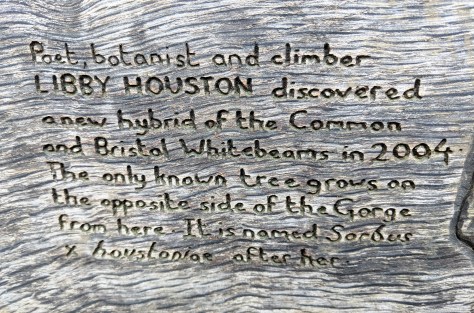 Poet, botanist and climber
LIBBY HOUSTON discovered
a new hybrid of the Common
and Bristol Whitebeams in 2004.
The only known tree grows on
the opposite side of the Gorge
from here. It is named Sorbus
x houstoniae after her.